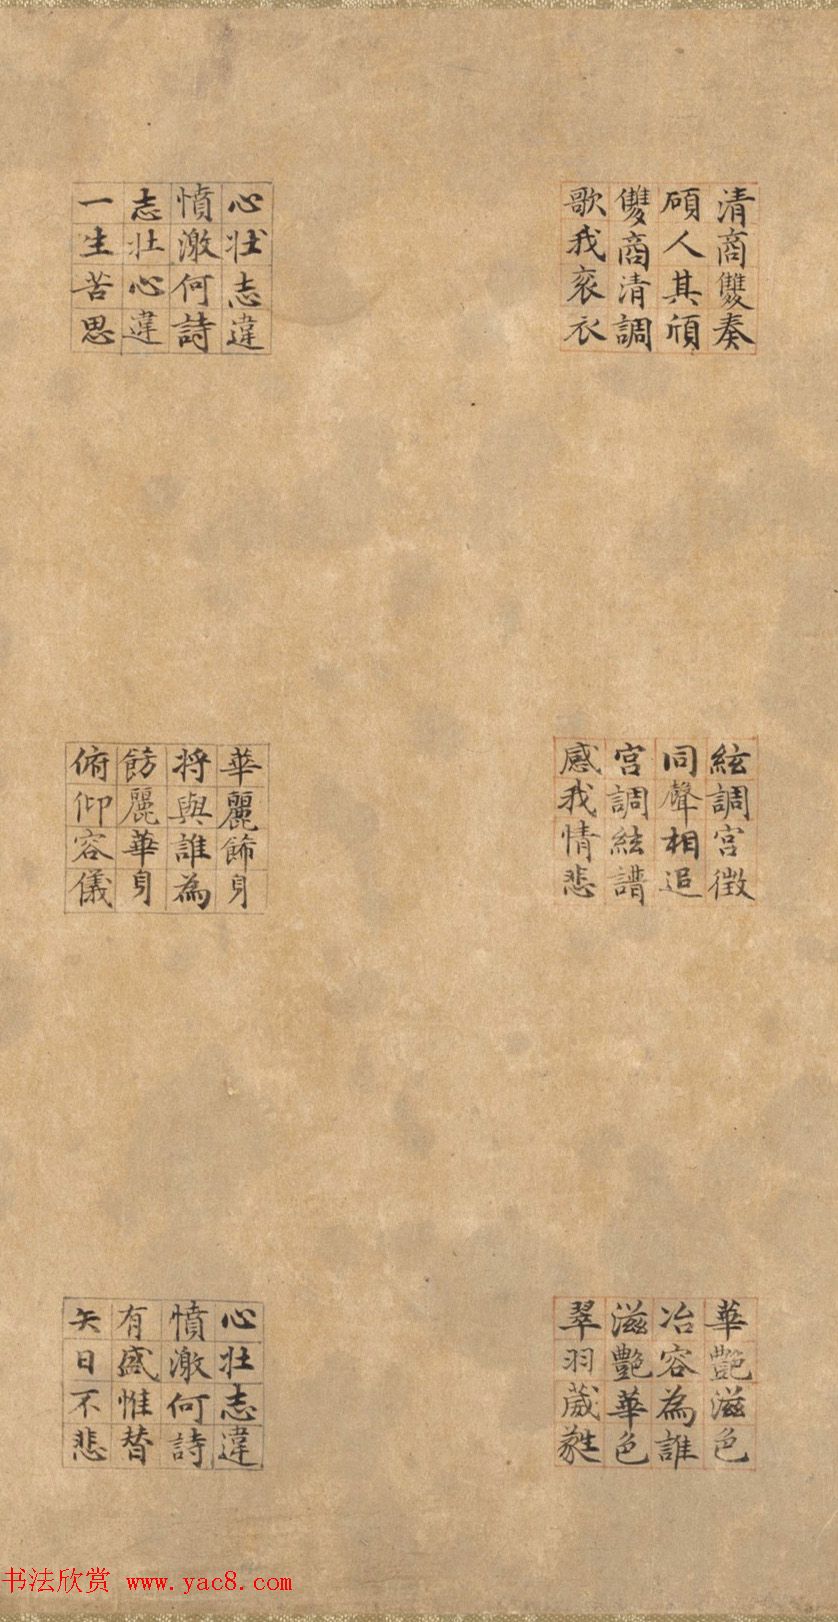 清商雙奏
碩人其頎
雙商清調
歌我衮衣
心壯志違
憤激何詩
志壯心違
一生苦思
絃調宮徵
同聲相追
宮調絃譜
感我情悲
華麗飾身
將與誰為
飭麗華身
俯仰容儀
華艷滋色
冶容為誰
滋艷華色
翠羽葳蕤
心壯志違
憤激何詩
有盛惟替
矢日不悲
书法欣赏 www.yac8.com